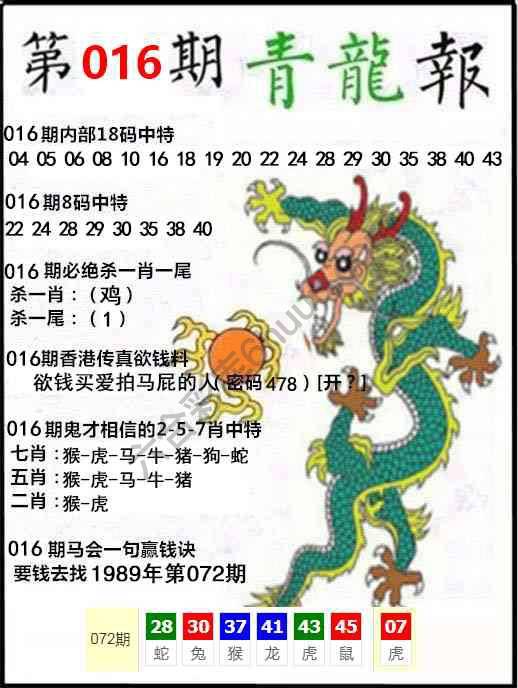 第016期青龍報
016期内部18码中特
04 05 06 08 10 16 18 19 20 22 24 28 29 30 35 38 40 43
016期8码中特
22 24 28 29 30 35 38 40
016期必绝杀一肖一尾
杀一肖：（鸡）
杀一尾：（1）
016期香港传真欲钱料
欲钱买爱拍马屁的人(密码478）[开？]
016期鬼才相信的2-5-7肖中特
七肖：猴-虎-马-牛-猪-狗-蛇
五肖：猴-虎-马-牛-猪
二肖：猴-虎
016期马会一句赢钱诀
要钱去找1989年第072期
072期 28 30 37 41 43 45 07
蛇 兔 猴 龙 虎 鼠 虎